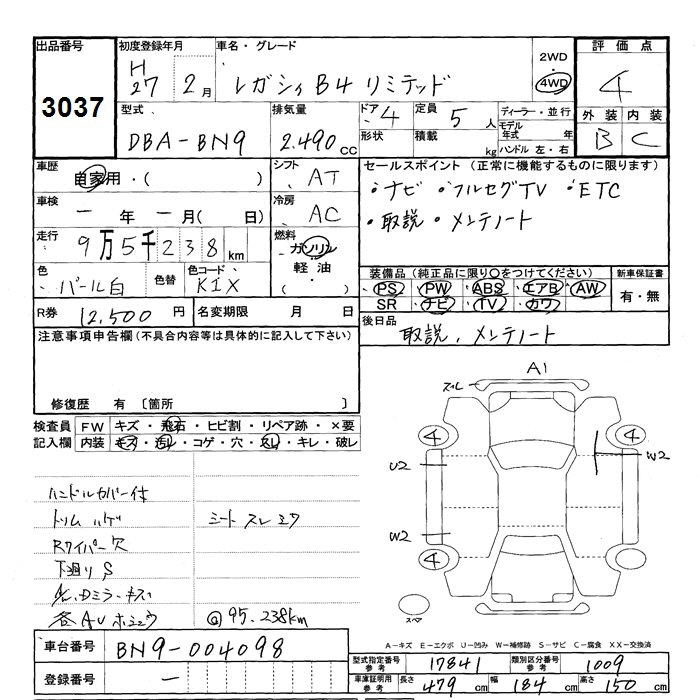 出品番号
3037
初度登録年月
H27 2月
車名・グレード
レガシィB4 リミテッド
2WD
4WD
評価点
4
外装 内装
B C
型式
DBA-BN9
排気量
2.490cc
ドア 4
形状
定員 5人
積載 kg
ディーラー・並行
モデル年式 年
ハンドル 左・右
車歴
自家用・( )
シフト
AT
車検
ー年ー月( 日)
冷房
AC
走行
9万5千238km
燃料
ガソリン
軽油
( )
色
パール白
色替
色コード
K1X
R券 12,500円
名変期限 月 日
セールスポイント (正常に機能するものに限ります)
・ナビ ・フルセグTV ・ETC
・取説 ・メンテノート
装備品 (純正品に限り○をつけてください)
PS PW ABS エアB AW
SR ナビ TV カワ
新車保証書
有・無
後日品
取説、メンテノート
注意事項申告欄 (不具合内容等は具体的に記入して下さい)
修復歴 有 〔箇所 〕
検査員記入欄
FW キズ・飛石・ヒビ割・リペア跡・×要
内装 キズ・汚レ・コゲ・穴・スレ・キレ・破レ
ハンドルカバー付
トリムハゲ
シートスレ
Rワイパー欠
下廻りS
@95.238km
車台番号 BN9-004098
登録番号 ー
A1
スレ
4
4
U2
W2
W2
4
スペア
A-キズ E-エクボ U-凹み W-補修跡 S-サビ C-腐食 XX-交換済
型式指定番号 参考 17841
類別区分番号 参考 1009
車庫証明用 参考 長さ 479cm 幅 184cm 高さ 150cm